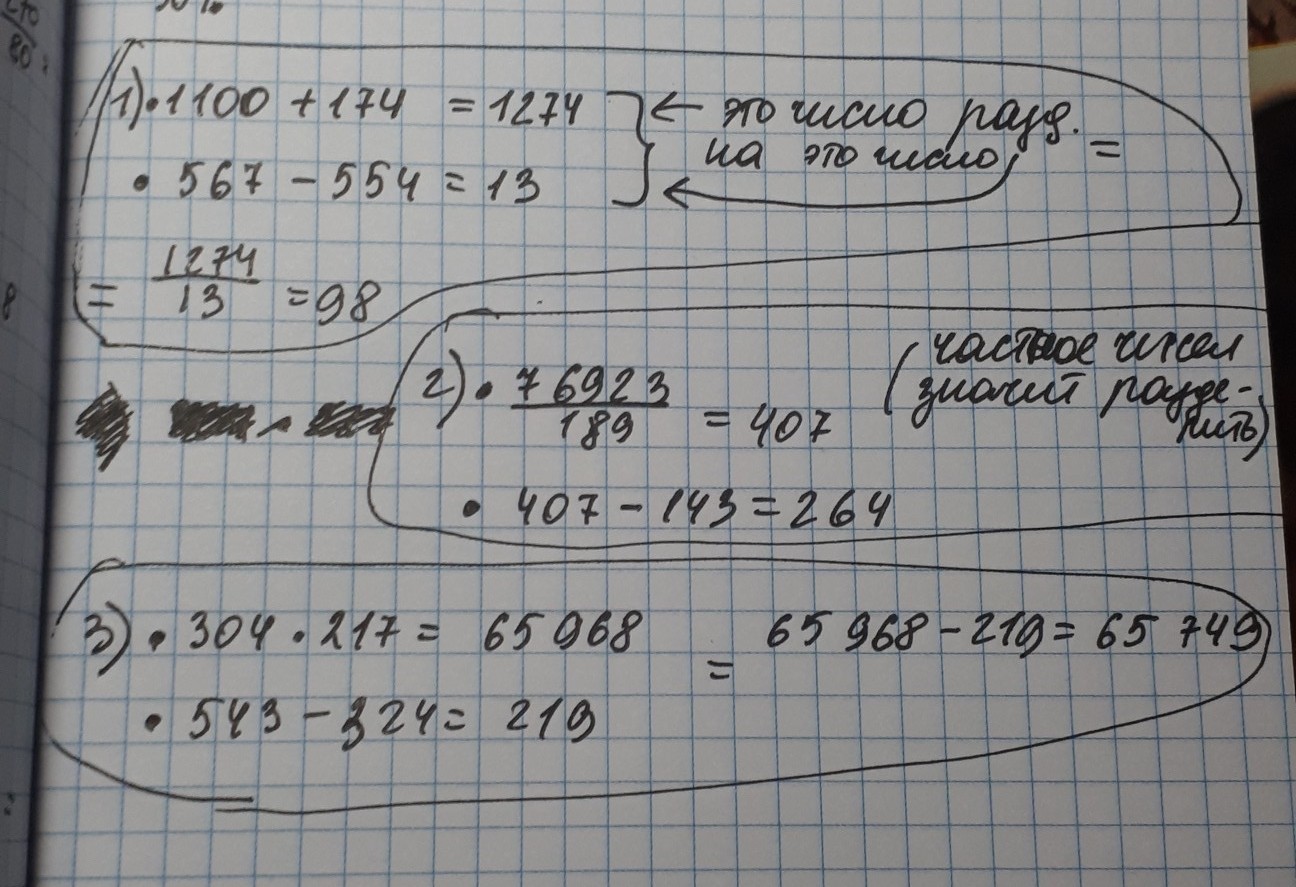 1) • 1100 + 174 = 1274 ← это число разд.
на это число =
• 567 - 554 = 13
= 1274/13 = 98
2) • 76923/189 = 407 (частное чисел
значит разде-
лить)
• 407 - 143 = 264
3) • 304 • 217 = 65 968 = 65 968 - 219 = 65 749
• 543 - 324 = 219